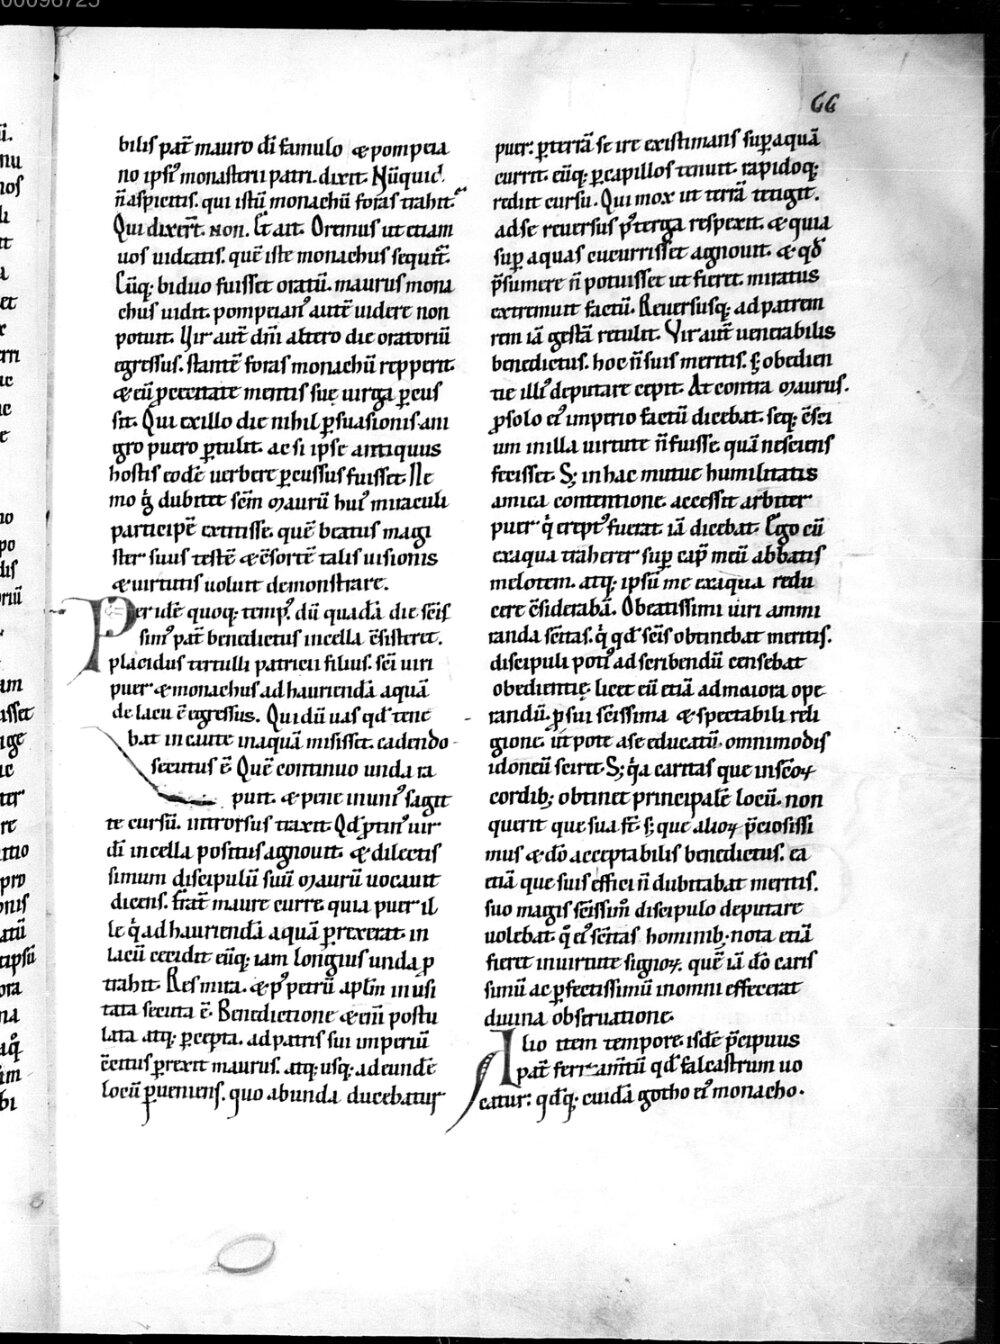 66
bilis pat̄ mauro dī famulo & pompeia
no ipsi' monasterii patri. dixit. Nūquid
n̄ aspicitis. qui istū monachū foras trahit.
Qui dixer̄t. non. Et ait. Oremus ut etiam
uos uideatis. quē iste monachus sequit᷑.
Cūq; biduo fuisset oratū. maurus mona
chus uidit. pompeian' autē uidere non
potuit. Vir aut̄ dn̄i altero die oratoriū
egressus. stantē foras monachū repperit.
& eū p cecitate mentis suę uirga ꝑcus
sit. Qui ex illo die nihil ꝑsuasionis a ni
gro puero ꝑtulit. ac si ipse antiquus
hostis eodē uerbere ꝑcussus fuisset. Ne
mo g̊ dubitet sc̄m maurū hui' miraculi
participē extitisse. quē beatus magi
ster suus testē & c̄sortē talis uisionis
& uirtutis uoluit demonstrare.
Per idē quoq; temp'. dū quadā die sc̄is
sim' pat̄ benedictus in cella c̄sisteret.
placidus tertulli patricii filius. sc̄i uiri
puer & monachus ad hauriendā aquā
de lacu ē egressus. Qui dū uas qd̄ tene
bat incaute in aquā misisset. cadendo
secutus ē. Quē continuo unda ra
puit. & pene in uni' sagit
te cursū. introrsus traxit. Qd̄ ꝓtin' uir
dī in cella positus agnouit. & dilectis
simum discipulū suū maurū uocauit
dicens. frat̄ maure curre. quia puer il
le q̇ ad hauriendā aquā ꝑrexerat. in
lacū cecidit. eūq; iam longius unda ꝑ
trahit. Res mira. & p' petrū aplm̄ inusi
tata secuta ē. Benedictione & eni postu
lata atq; ꝑcepta. ad patris sui imperiū
c̄citus ꝑrexit maurus. atq; usq; ad eundē
locū ꝑueniens. quo ab unda ducebatur
puer: ꝑ terrā se ire existimans sup aquā
currit. eūq; ꝑ capillos tenuit. rapidoq;
rediit cursu. Qui mox ut terrā tetigit.
ad se reuersus p' terga respexit. & quia
sup aquas cucurrisset agnouit. & qd̄
p̄sumere n̄ potuisset ut fieret. miratus
extremuit factū. Reuersusq; ad patrem
rem iā gestā retulit. Vir aut̄ uenerabilis
benedictus. hoc n̄ suis meritis. s; obedien
tie illi' deputare cepit. At contra maurus.
ꝓ solo ei' imperio factū dicebat. seq; c̄sci
um in illa uirtute n̄ fuisse. quā nesciens
fecisset. S; in hac mutue humilitatis
amica contentione. accessit arbiter
puer q̇ erept' fuerat. iā dicebat. Ego cū
ex aqua traherer. sup cap̄ meū abbatis
melotem. atq; ipsū me ex aqua redu
cere c̄siderabā. O beatissimi uiri ammi
randa sc̄itas. q̇ qd̄ sc̄is obtinebat meritis.
discipuli poti' adscribendū censebat
obedientię. licet eū etiā ad maiora ope
randū. ꝓ sui sc̄issima & spectabili reli
gione. ut pote a se educatū. omnimodis
idoneū sciret. S; q̇a caritas que in sc̄oꝝ
cordib; obtinet principalē locū. non
querit que sua st̄. s; que alioꝝ. p̄ciosissi
mus & dō acceptabilis benedictus. ea
etiā que suis effici n̄ dubitabat meritis.
suo magis sc̄issim̄ discipulo deputare
uolebat. q̄ ei' sc̄itas hominib; nota etiā
fieret in uirtute signoꝝ. quē iā dō caris
simū ac ꝑfectissimū in omni effecerat
diuina obseruatione.
Alio item tempore. isdē p̄cipuus
pat̄ ferramtū qd̄ falcastrum uo
catur: qd̄q; cuidā gotho ei' monacho.